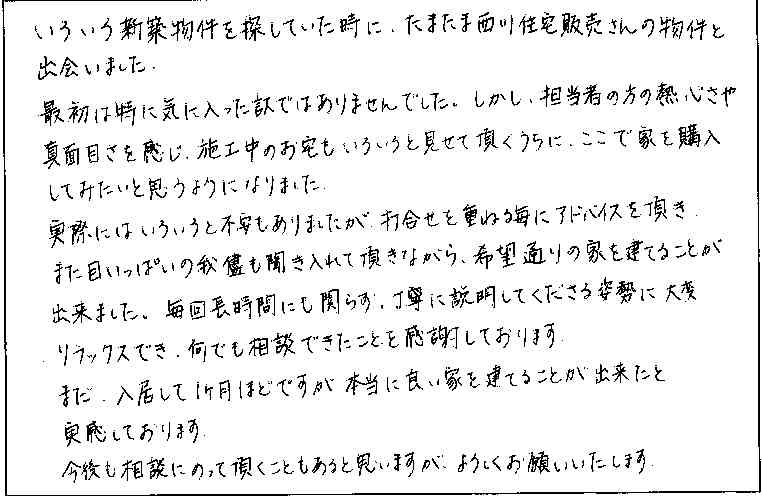 いろいろ新築物件を探していた時に、たまたま西川住宅販売さんの物件と
出会いました。
最初は特に気に入った訳ではありませんでした。しかし、担当者の方の熱心さや
真面目さを感じ、施工中のお宅もいろいろと見せて頂くうちに、ここで家を購入
してみたいと思うようになりました。
実際にはいろいろと不安もありましたが、打合せを重ねる毎にアドバイスを頂き、
また目いっぱいの我儘も聞き入れて頂きながら、希望通りの家を建てることが
出来ました。毎回長時間にも関らず、丁寧に説明してくださる姿勢に大変
リラックスでき、何でも相談できたことを感謝しております。
まだ、入居して1ヶ月ほどですが本当に良い家を建てることが出来たと
実感しております。
今後も相談にのって頂くこともあると思いますが、よろしくお願いいたします。